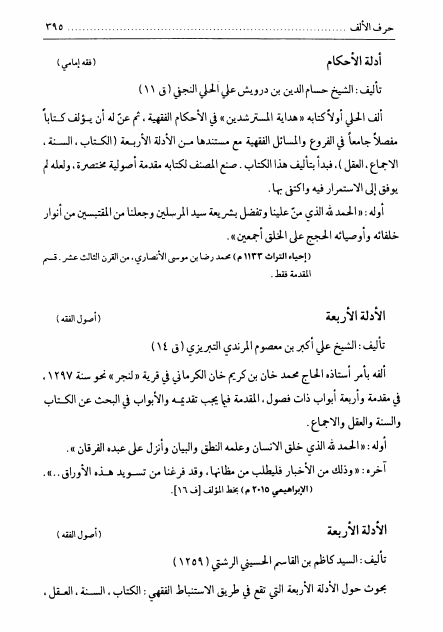 حرف الألف ........................................................ ٣٩٥
أدلة الأحكام (فقه إمامي)
تأليف : الشيخ حسام الدين بن درويش علي الحلي النجفي (ق ١١)
ألف الحلي أولاً كتابه «هداية المسترشدين» في الأحكام الفقهية ، ثم عنّ له أن يـؤلف كـتاباً
مفصلاً جامعاً في الفروع والمسائل الفقهية مع مستندها مـن الأدلة الأربـعة (الكـتاب ، السـنة ،
الاجماع ، العقل) ، فبدأ بتأليف هذا الكتاب . صنع المصنف لكتابه مقدمة أصولية مختصرة، ولعله لم
يوفق إلى الاستمرار فيه واكتفى بها.
أوله : «الحمد لله الذي منّ علينا وتفضل بشريعة سيد المرسلين وجعلنا من المقتبسين من أنوار
خلفائه وأوصيائه الحجج على الخلق أجمعين».
(إحياء التراث ١١٣٣ م) محمد رضا بن موسى الأنصاري، من القرن الثالث عشر . قسم
المقدمة فقط .
الأدلة الأربعة (أصول الفقه)
تأليف : الشيخ علي أكبر بن معصوم المرندي التبريزي (ق ١٤)
ألفه بأمر أستاذه الحاج محمد خان بن كريم خان الكرماني في قرية «لنجر» نحو سنة ١٢٩٧ ،
في مقدمة وأربعة أبواب ذات فصول ، المقدمة فيما يجب تقديمـه والأبواب في البحث عن الكـتاب
والسنة والعقل والاجماع.
أوله : «الحمد لله الذي خلق الانسان وعلمه النطق والبيان وأنزل على عبده الفرقان ».
آخره : «وذلك من الأخبار فليطلب من مظانها، وقد فرغنا من تسويد هـذه الأوراق ..».
(الإبراهيمي ٢٠١٥ م) بخط المؤلف [ف ١٦].
الأدلة الأربعة (أصول الفقه)
تأليف : السيد كاظم بن القاسم الحسيني الرشتي (١٢٥٩)
بحوث حول الأدلة الأربعة التي تقع في طريق الاستنباط الفقهي : الكتاب ، السـنة ، العـقل ،